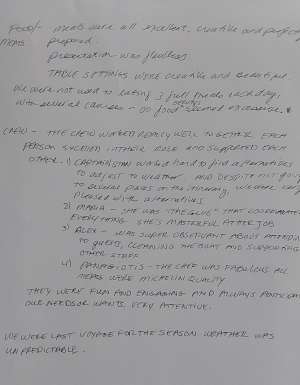 Food/ - meals were all excellent, creative and perfectly
MEALS prepared.
presentation was flawless
TABLE SETTINGS WERE creative and Beautiful
We were not used to eating 3 full meals each day,
with several courses - so food seemed excessive.
CREW - THE CREW WORKED REALLY WELL TOGETHER. EACH
PERSON in THEIR ROLE AND SUPPORTED EACH
OTHER. 1) CAPTAIN STAN worked hard to find alternatives
to adjust to weather. AND DESPITE not going
to several places on the itinerary, we were very
pleased with alternatives
2) MARIA - SHE WAS "THE GLUE" THAT COORDINATED
EVERYTHING. SHE'S MASTERFUL AT HER JOB
3) ALEX - WAS SUPER OBSERVANT ABOUT ATTENDING
to GUESTS, CLEANING THE BOAT AND SUPPORTING
OTHER STAFF
4) PANAGIOTIS - THE CHEF WAS FABULOUS. ALL
MEALS WERE MICHELIN QUALITY
THEY WERE FUN AND ENGAGING AND ALWAYS ANTICIPATED
OUR NEEDS OR WANTS. VERY ATTENTIVE.
WE WERE LAST VOYAGE FOR THE SEASON WEATHER WAS
UNPREDICTABLE.